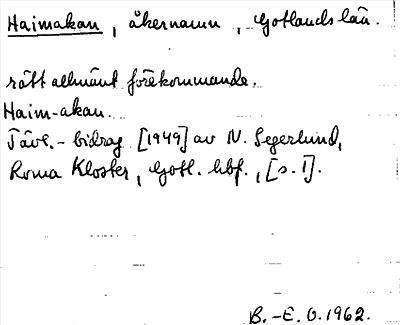 Haimakan, åkernamn, Gotlands län.
rätt allmänt förekommande.
Haim-akan.
Tävl.-bidrag [1949] av N. Segerlund,
Roma Kloster, Gotl. hbf., [s. 1].
B.-E. O. 1962.